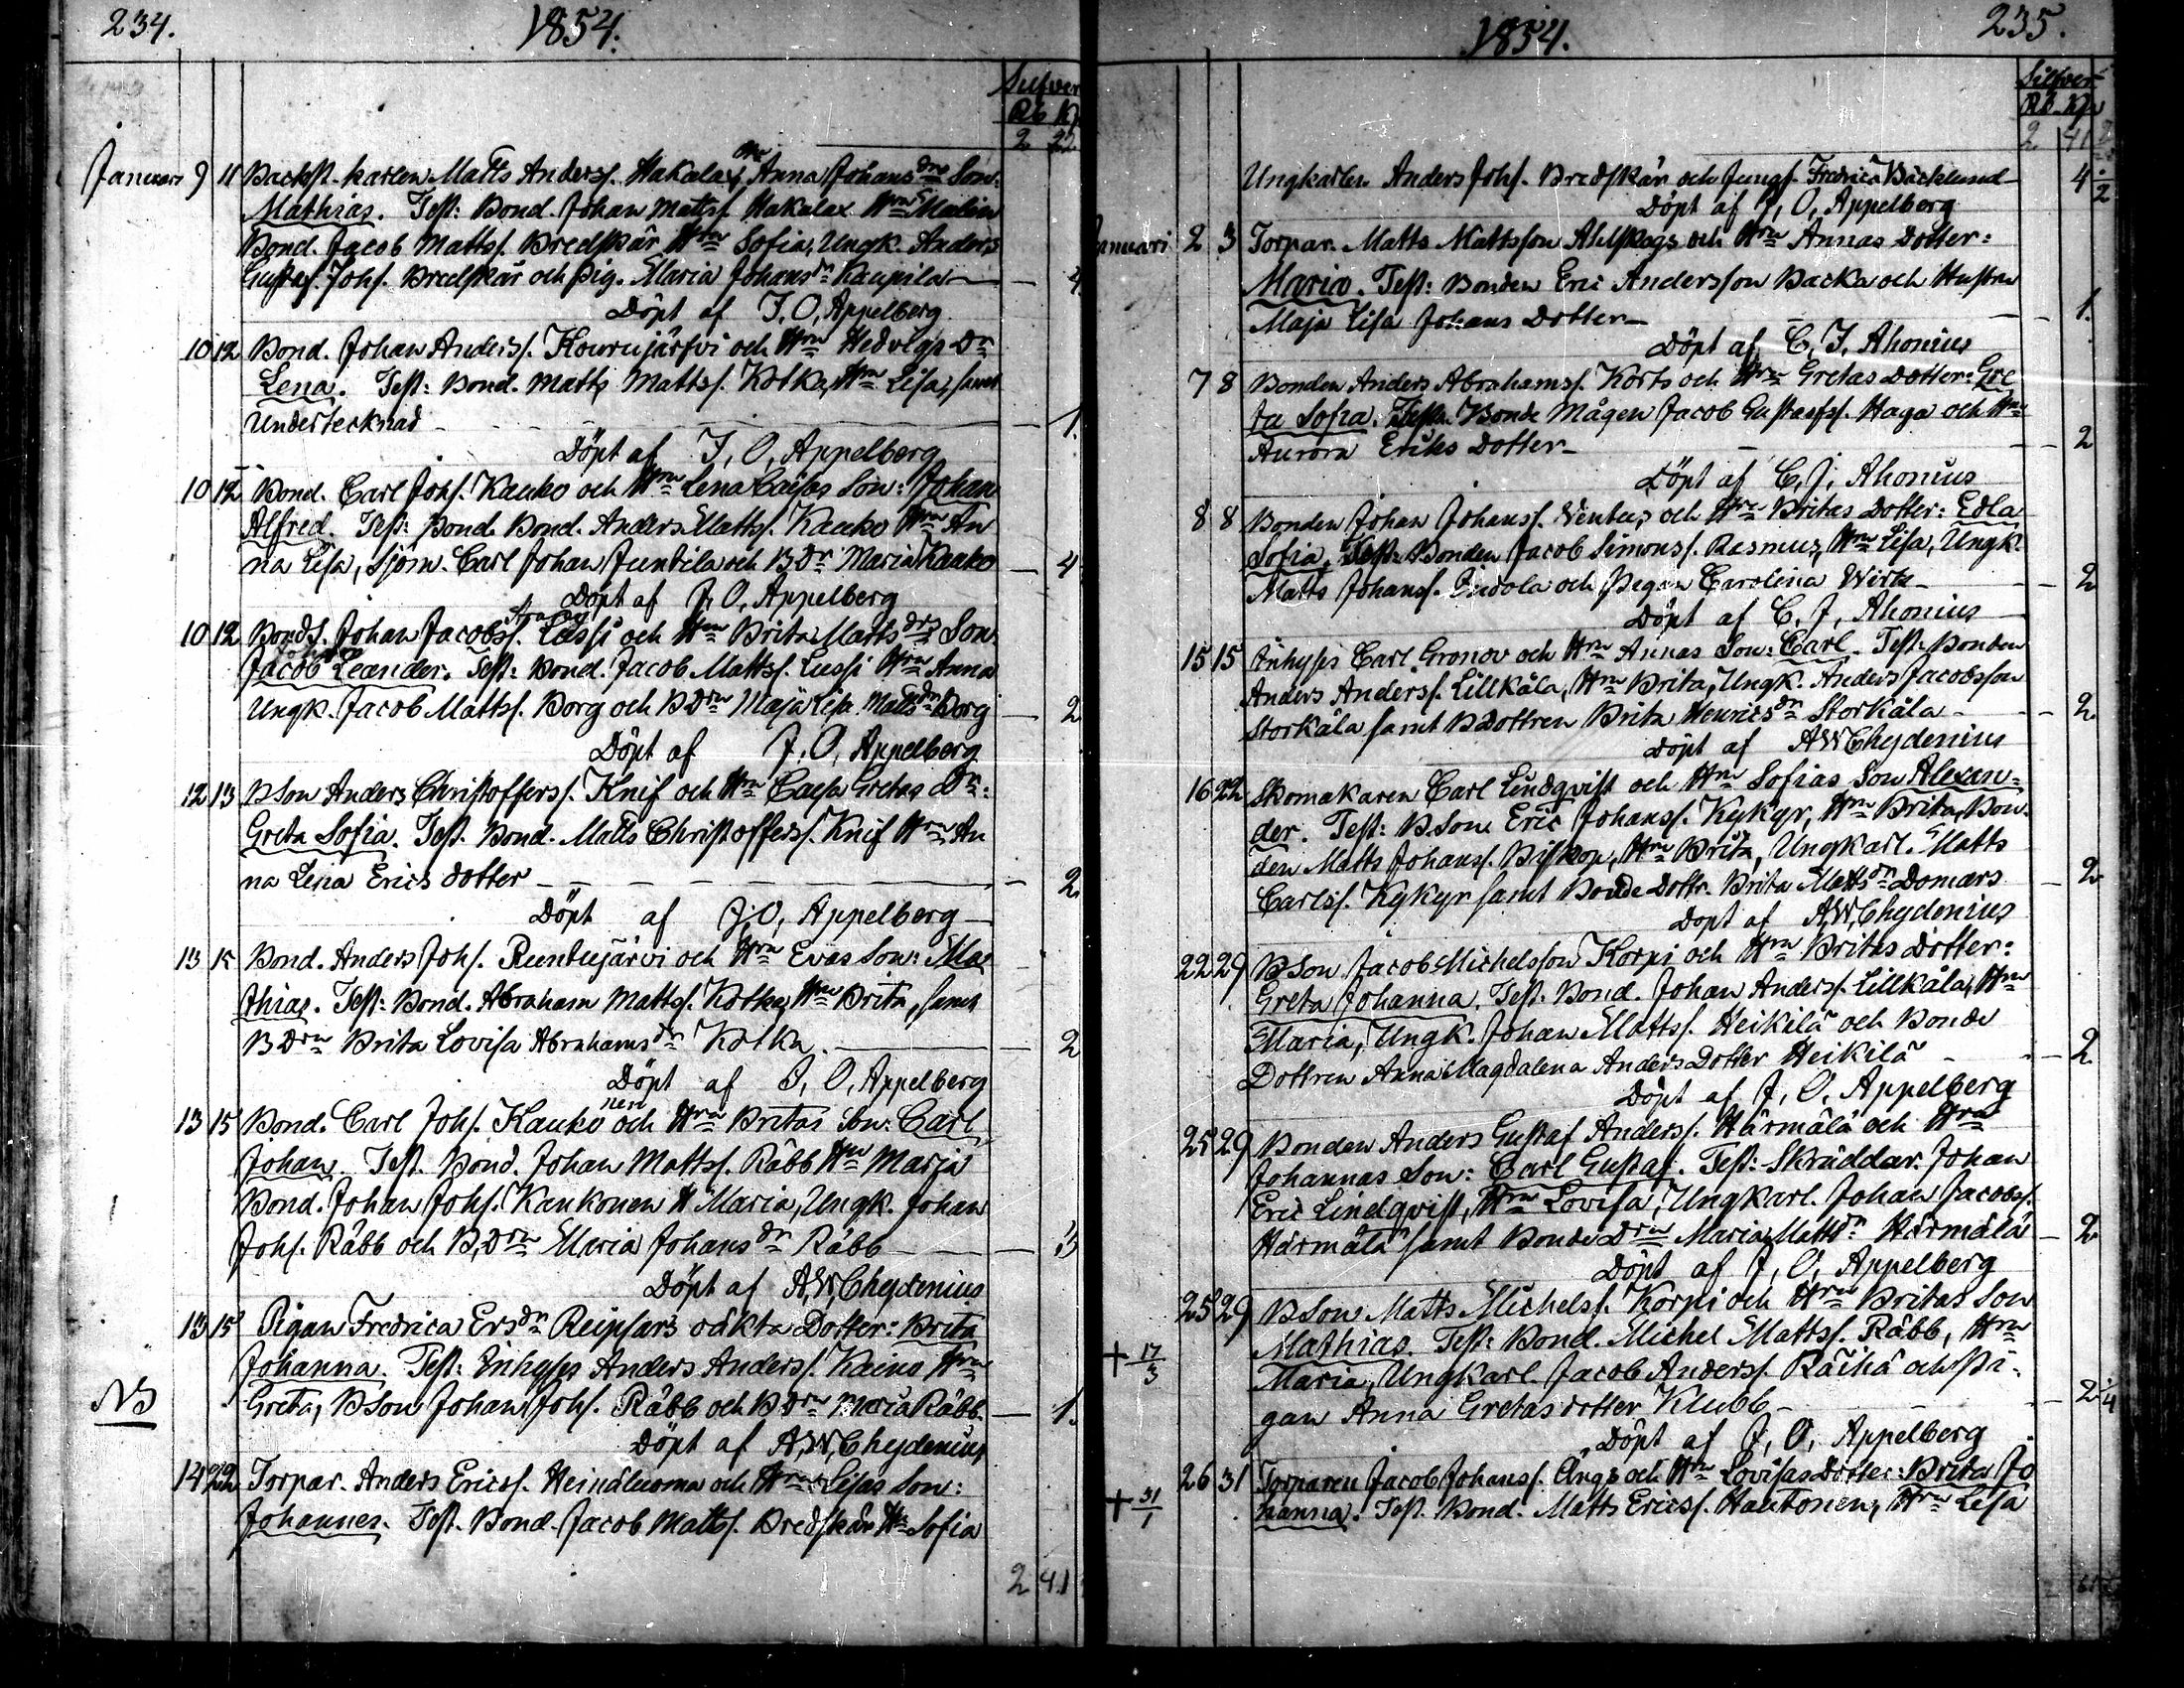 234.
1854.
Silfver
Rb K
2 22
Januari 9 11 Backst. karlen Matts Anderss. Hakalax, Anna Johans drs Son:
Mathias. Test: Bond. Johan Mattss. Hakalax Hru Malin
Bond. Jacob Mattss. Bredskär Hru Sofia, Ungk. Anders
Gustaf Johs. Bredskär och pig. Maria Johans dr Kaupila — 4.
Döpt af J. O. Appelberg
10 12 Bond. Johan Anderss. Kourujärfvi och Hru Hedvigs Dr
Lena. Test: Bond. Matts Mattss. Kotka, Hru Lisa, samt
Undertecknad — 1.
Döpt af J. O. Appelberg
10 12 Bond. Carl Johs. Kauko och Hru Lena Cajsas Son: Johan
Alfred. Test: Bond. Bond. Anders Mattss. Kauko Hru An
na Lisa, Sjöm. Carl Johan Juntila och B Dr Maria Kauko — 4
Döpt af J. O. Appelberg
10 12 BondS. Johan Jacobss. Lassi och Hru Brita Matts drs Son
Johan
Jacob Leander. Test: Bond. Jacob Mattss. Lussi Hru Anna
Ungk. Jacob Mattss. Borg och B Dru Maja Lisa Matts dr Borg — 2
Döpt af J. O. Appelberg
12 13 BSon Anders Christofferss. Knif och Hru Cajsa Gretas Dr:
Greta Sofia. Test. Bond. Matts Christofferss. Knif Hru An
na Lena Erics dotter — 2.
Döpt af J. O. Appelberg
13 15 Bond. Anders Johs. Runtujärvi och Hru Evas Son: Ma
thias. Test: Bond. Abraham Mattss. Kotka, Hru Brita, samt
B Dru Brita Lovisa Abrahams dr Kotka. — 2
Döpt af J. O. Appelberg
nen
13 15 Bond. Carl Johs. Kauko och Hru Britas Son: Carl
Johan. Test. Bond. Johan Mattss. Räbb Hru Marja
Bond. Johan Johs. Kaukonen H Maria, Ungk. Johan
Johs. Räbb och B. Dru Maria Johans dr Räbb — 3
Döpt af A. W. Chydenius
13 15 Pigan Fredrica Ers dr Reipsars oäkta Dotter: Brita
Johanna. Test: Inhyses Anders Anderss. Kaino Hru
NB Greta, BSon Johan Johs. Räbb och B Dru Maria Räbb. — 1.
Döpt af A. W. Chydenius
14 22 Torpar. Anders Ericss. Heinäluoma och Hru Lisas Son:
Johannes. Test. Bond. Jacob Mattss. Bredskär Hr Sofia
2 41
1854.
235.
Silfver
Rb. Kp
2 41
Ungkarlen Anders Johs. Bredskär och Jungf. Fredrica Bäcklund 4.
Döpt af J. O. Appelberg
Januari 2 3 Torpar. Matts Mattsson Ahlskogs och Hru Annas Dotter:
Maria. Test: Bonden Eric Andersson Backa och Hustru
Maja Lisa Johans Dotter — 1.
Döpt af C. J. Ahonius
7 8 Bonden Anders Abrahamss. Korts och Hru Gretas Dotter: Gre
ta Sofia. Test. Bonde Mågen Jacob Gustafss. Haga och Hru
Aurora Eriks Dotter — 2
Döpt af C. J. Ahonius
8 8 Bonden Johan Johanss. Ventus och Hru Britas Dotter: Edla
Sofia. Test: Bonden Jacob Simonss. Rasmus, Hru Lisa, Ungk.
Matts Johanss. Indola och Pigan Carolina Wirta — 2
Döpt af C. J. Ahonius
15 15 Inhyses Carl Gronov och Hru Annas Son: Carl. Test: Bonden
Anders Anderss. Lillkåla, Hru Brita, Ungk. Anders Jacobsson
Storkåla samt BDottren Brita Henrics dr Storkåla — 2.
Döpt af AW Chydenius
16 22 Skomakaren Carl Lindqvist och Hru Sofias Son Alexan=
der. Test: B.Son Eric Johanss. Kykyr, Hru Brita, Bon=
den Matts Johanss. Biskop, Hru Brita, Ungkarl. Matts
Carlss. Kykyr samt Bonde Dottr. Brita Matts dr Domars — 2
Döpt af AW. Chydenius
22 29 BSon Jacob Michelsson Korpi och Hru Britas Dotter:
Greta Johanna. Test: Bond. Johan Anderss. Lillkåla, Hru
Maria, Ungk. Johan Mattss. Heikilä och Bonde
Dottren Anna Magdalena Anders Dotter Heikilä — 2
Döpt af J. O. Appelberg
25 29 Bonden Anders Gustaf Anderss. Härmälä och Hru
Johannas Son: Carl Gustaf. Test: Skräddar. Johan
Eric Lindqvist, Hru Lovisa, Ungkarl. Johan Jacobss.
Härmälä samt Bonde Dru Maria Matts dr Härmälä — 2
Döpt af J. O. Appelberg
25 29 BSon Matts Michelss. Korpi och Hru Britas Son
+ 17/3 Mathias. Test: Bond. Michel Mattss. Räbb, Hru
Maria, Ungkarl. Jacob Anderss. Räihä och Pi=
gan Anna Gretas dotter Klubb — 2
Döpt af J. O. Appelberg
26 31 Torparen Jacob Johanss. Ängs och Hru Lovisas Dotter: Brita Jo
+ 31/1 hanna. Test. Bond. Matts Ericss. Hautonen, Hru Lisa